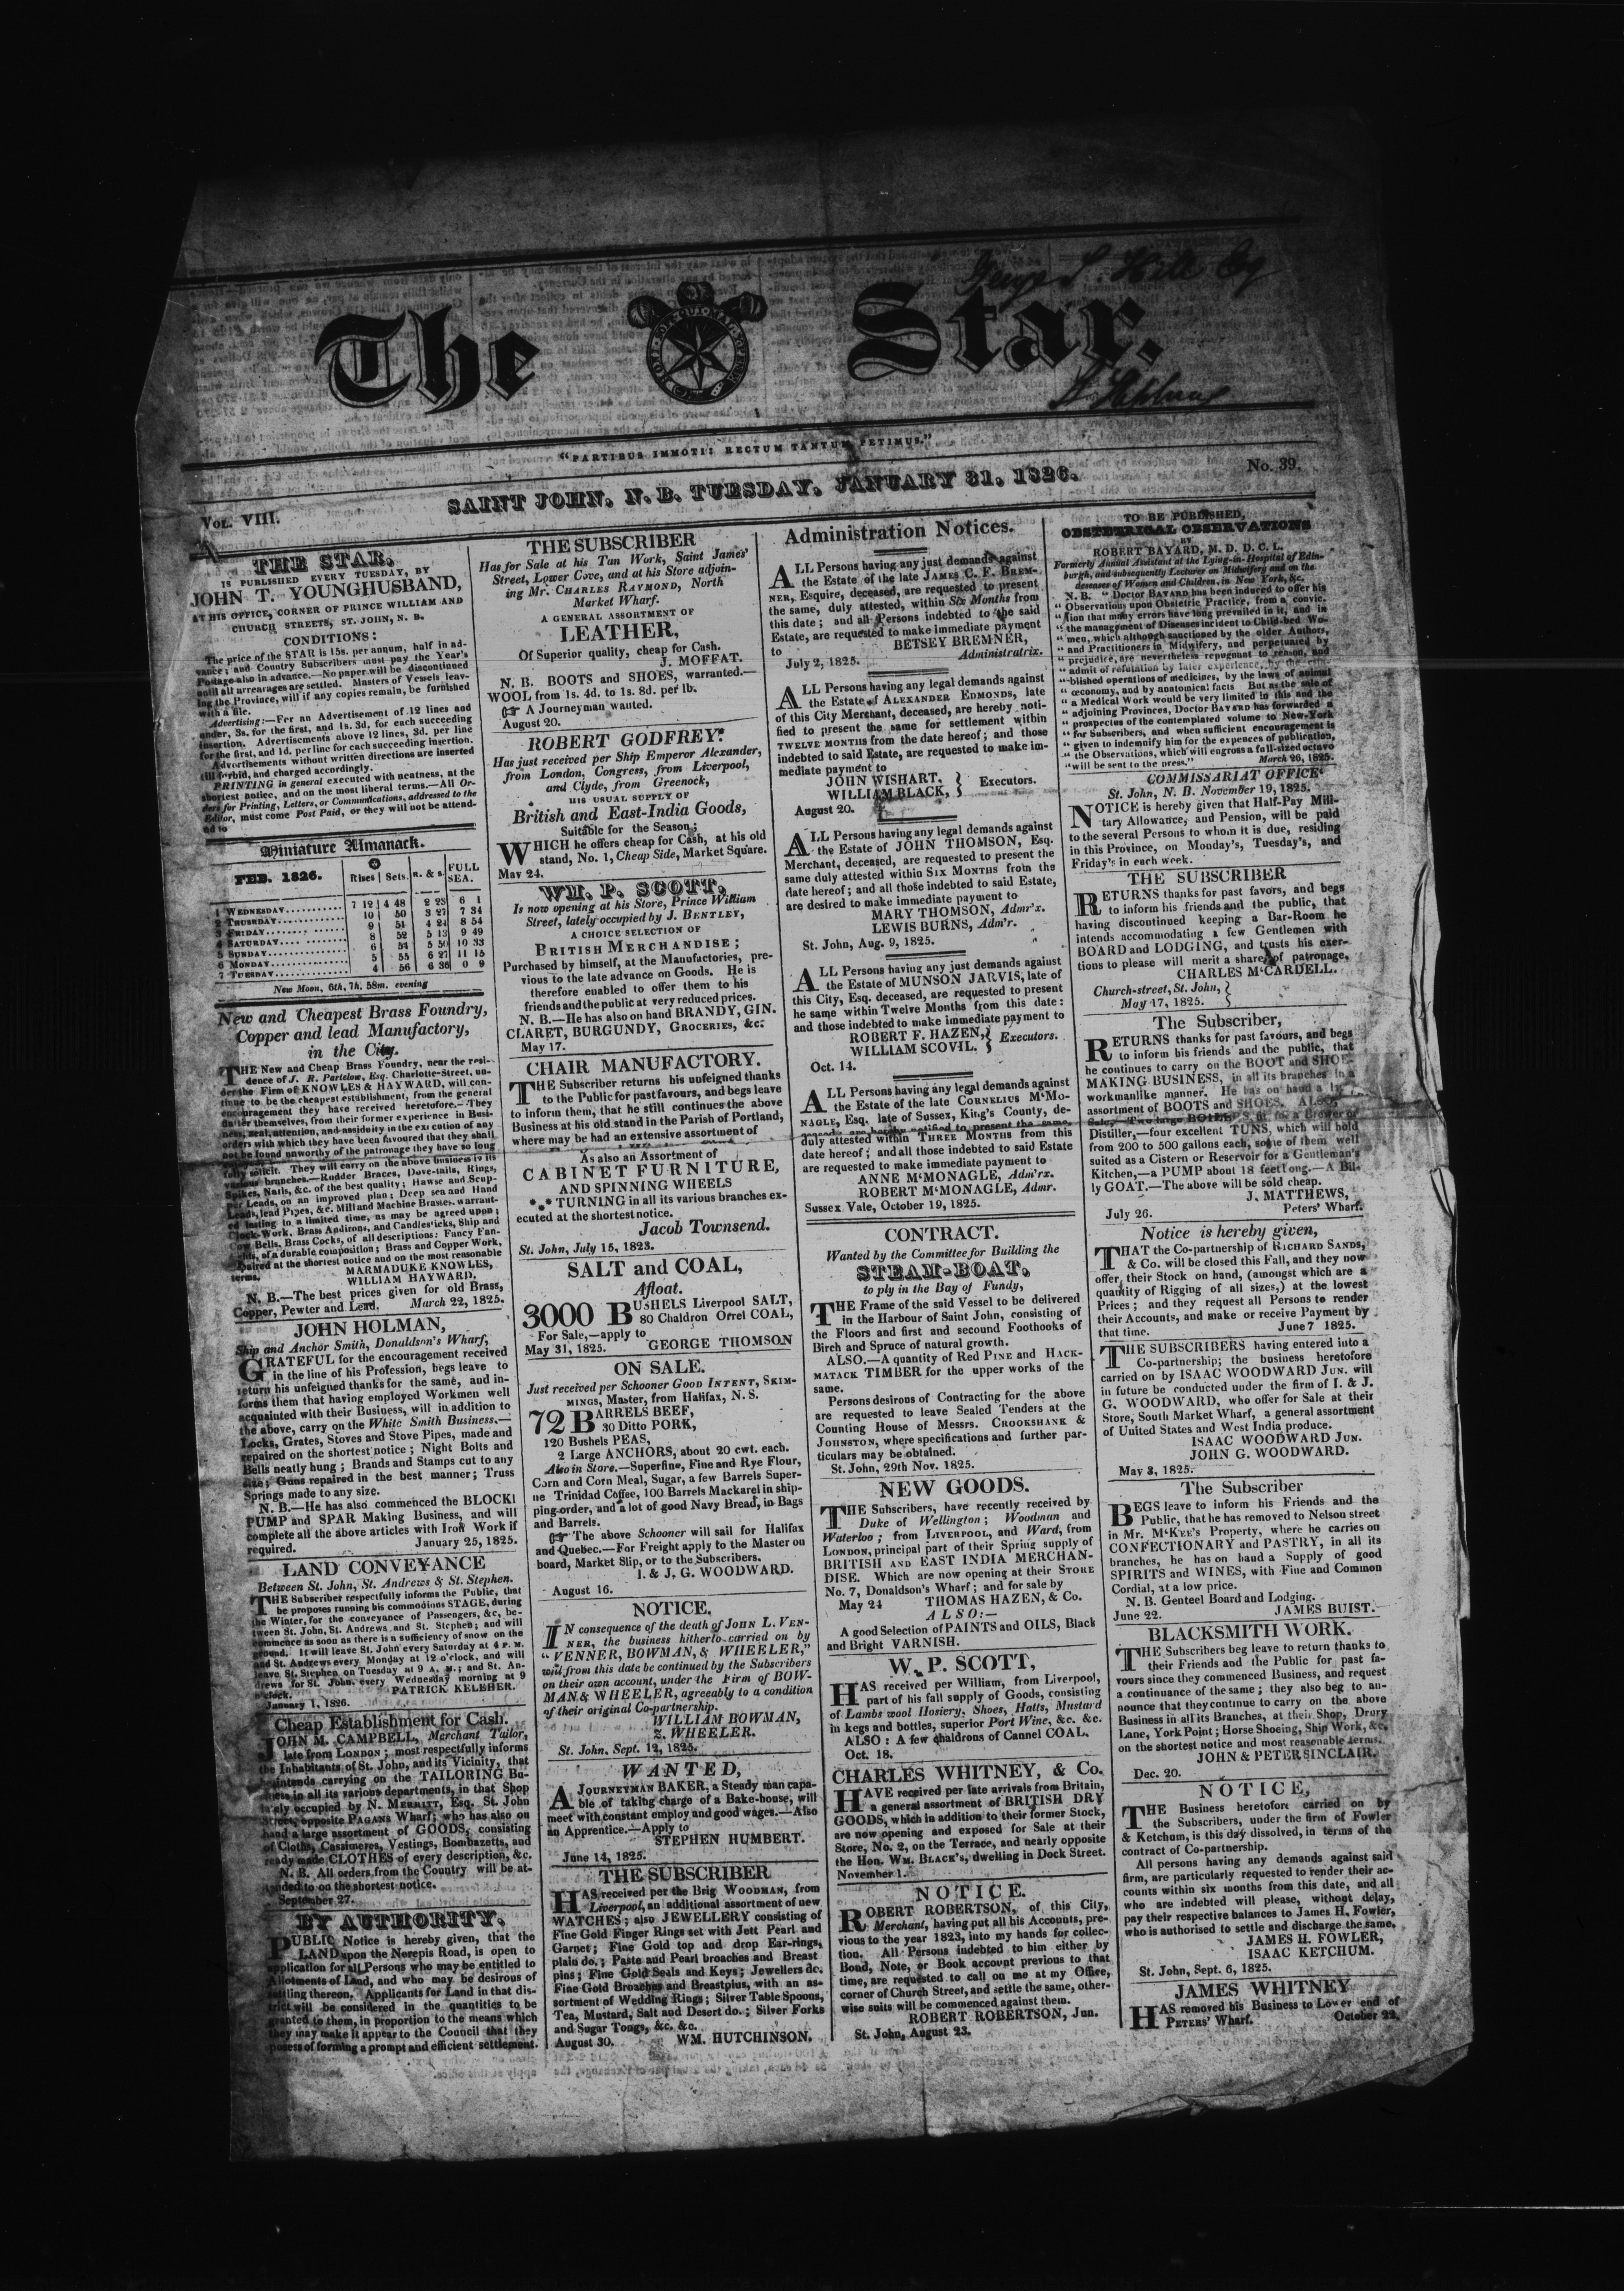 George S. Hill Esq
The Star.
St Stephens
"PARTIBUS IMMOTI: RECTUM TANTUM PETIMUS."
VOL. VIII.
SAINT JOHN, N. B. TUESDAY, JANUARY 31, 1826.
No. 39.
THE STAR,
IS PUBLISHED EVERY TUESDAY, BY
JOHN T. YOUNGHUSBAND,
AT HIS OFFICE, CORNER OF PRINCE WILLIAM AND
CHURCH STREETS, ST. JOHN, N. B.
CONDITIONS:
The price of the STAR is 15s. per annum, half in ad-
vance; and Country Subscribers must pay the Year's
Postage also in advance.—No paper will be discontinued
until all arrearages are settled. Masters of Vessels leav-
ing the Province, will if any copies remain, be furnished
with a file.
Advertising:—For an Advertisement of 12 lines and
under, 3s. for the first, and 1s. 3d. for each succeeding
insertion. Advertisements above 12 lines, 3d. per line
for the first, and 1d. per line for each succeeding insertion.
Advertisements without written directions are inserted
till forbid, and charged accordingly.
PRINTING in general executed with neatness, at the
shortest notice, and on the most liberal terms.—All Or-
ders for Printing, Letters, or Communications, addressed to the
Editor, must come Post Paid, or they will not be attend-
ed to
Miniature Almanack.
FEB. 1826. Rises Sets. R. & S. FULL SEA.
1 WEDNESDAY 7 12 4 48 2 23 6 1
2 THURSDAY 10 50 3 27 7 34
3 FRIDAY 9 51 4 24 8 54
4 SATURDAY 8 52 5 13 9 49
5 SUNDAY 6 54 5 50 10 33
6 MONDAY 5 55 6 27 11 15
7 TUESDAY 4 56 6 36 0 9
New Moon, 6th, 7h. 58m. evening
New and Cheapest Brass Foundry,
Copper and lead Manufactory,
in the City.
THE New and Cheap Brass Foundry, near the resi-
dence of J. R. Partelow, Esq. Charlotte-Street, un-
der the Firm of KNOWLES & HAYWARD, will con-
tinue to be the cheapest establishment, from the general
encouragement they have received heretofore.—They
flatter themselves, from their former experience in Busi-
ness, zeal, attention, and assiduity in the execution of any
orders with which they have been favoured that they shall
not be found unworthy of the patronage they have so long
fully solicit. They will carry on the above business in its
various branches.—Rudder Braces, Dove-tails, Rings,
Spikes, Nails, &c. of the best quality; Hawse and Scup-
per Leads, on an improved plan; Deep sea and Hand
Leads, lead Pipes, &c. Mill and Machine Brasses, warrant-
ed lasting to a limited time, as may be agreed upon;
Clock-Work, Brass Andirons, and Candlesticks, Ship and
Cow Bells, Brass Cocks, of all descriptions: Fancy Fan-
lights, of a durable composition; Brass and Copper Work,
repaired at the shortest notice and on the most reasonable
terms.
MARMADUKE KNOWLES,
WILLIAM HAYWARD.
N. B.—The best prices given for old Brass,
Copper, Pewter and Lead. March 22, 1825.
JOHN HOLMAN,
Ship and Anchor Smith, Donaldson's Wharf,
GRATEFUL for the encouragement received
in the line of his Profession, begs leave to
return his unfeigned thanks for the same, and in-
forms them that having employed Workmen well
acquainted with their Business, will in addition to
the above, carry on the White Smith Business.—
Locks, Grates, Stoves and Stove Pipes, made and
repaired on the shortest notice; Night Bolts and
Bells neatly hung; Brands and Stamps cut to any
size; Guns repaired in the best manner; Truss
Springs made to any size.
N. B.—He has also commenced the BLOCK!
PUMP and SPAR Making Business, and will
complete all the above articles with Iron Work if
required. January 25, 1825.
LAND CONVEYANCE
Between St. John, St. Andrews & St. Stephen.
THE Subscriber respectfully informs the Public, that
he proposes running his commodious STAGE, during
the Winter, for the conveyance of Passengers, &c, be-
tween St. John, St. Andrews and St. Stephen; and will
commence as soon as there is a sufficiency of snow on the
ground. It will leave St. John every Saturday at 4 P. M.
and St. Andrews every Monday at 12 o'clock, and will
leave St. Stephen on Tuesday at 9 A. M.; and St. An-
drews for St. John, every Wednesday morning at 9
o'clock. PATRICK KELEHER.
January 1, 1826.
Cheap Establishment for Cash.
JOHN M. CAMPBELL, Merchant Tailor,
late from LONDON; most respectfully informs
the Inhabitants of St. John, and its Vicinity, that
he intends carrying on the TAILORING Bu-
siness in all its various departments, in that Shop
lately occupied by N. MERRITT, Esq. St. John
Street, opposite PAGANS Wharf; who has also on
hand a large assortment of GOODS, consisting
of Cloths, Cassimeres, Vestings, Bombazetts, and
ready made CLOTHES of every description, &c.
N. B. All orders from the Country will be at-
tended to on the shortest notice.
September 27.
BY AUTHORITY.
PUBLIC Notice is hereby given, that the
LAND upon the Nerepis Road, is open to
application for all Persons who may be entitled to
Allotments of Land, and who may be desirous of
settling thereon. Applicants for Land in that dis-
trict will be considered in the quantities to be
granted to them, in proportion to the means which
they may make it appear to the Council that they
posess of forming a prompt and efficient settlement.
THE SUBSCRIBER
Has for Sale at his Tan Work, Saint James'
Street, Lower Cove, and at his Store adjoin-
ing Mr. CHARLES RAYMOND, North
Market Wharf.
A GENERAL ASSORTMENT OF
LEATHER,
Of Superior quality, cheap for Cash.
J. MOFFAT.
N. B. BOOTS and SHOES, warranted.—
WOOL from 1s. 4d. to 1s. 8d. per lb.
☞ A Journeyman wanted.
August 20.
ROBERT GODFREY:
Has just received per Ship Emperor Alexander,
from London, Congress, from Liverpool,
and Clyde, from Greenock,
HIS USUAL SUPPLY OF
British and East-India Goods,
Suitable for the Season;
WHICH he offers cheap for Cash, at his old
stand, No. 1, Cheap Side, Market Square.
May 24.
WM. P. SCOTT,
Is now opening at his Store, Prince William
Street, lately occupied by J. BENTLEY,
A CHOICE SELECTION OF
BRITISH MERCHANDISE;
Purchased by himself, at the Manufactories, pre-
vious to the late advance on Goods. He is
therefore enabled to offer them to his
friends and the public at very reduced prices.
N. B.—He has also on hand BRANDY, GIN.
CLARET, BURGUNDY, GROCERIES, &c.
May 17.
CHAIR MANUFACTORY.
THE Subscriber returns his unfeigned thanks
to the Public for past favours, and begs leave
to inform them, that he still continues the above
Business at his old stand in the Parish of Portland,
where may be had an extensive assortment of
As also an Assortment of
CABINET FURNITURE,
AND SPINNING WHEELS
*.* TURNING in all its various branches ex-
ecuted at the shortest notice.
Jacob Townsend.
St. John, July 15, 1823.
SALT and COAL,
Afloat.
3000 BUSHELS Liverpool SALT,
80 Chaldron Orrel COAL,
For Sale,—apply to
May 31, 1825. GEORGE THOMSON
ON SALE.
Just received per Schooner GOOD INTENT, SKIM-
MINGS, Master, from Halifax, N. S.
72 BARRELS BEEF,
30 Ditto PORK,
120 Bushels PEAS,
2 Large ANCHORS, about 20 cwt. each.
Also in Store.—Superfine, Fine and Rye Flour,
Corn and Corn Meal, Sugar, a few Barrels Super-
ne Trinidad Coffee, 100 Barrels Mackarel in ship-
ping order, and a lot of good Navy Bread, in Bags
and Barrels.
☞ The above Schooner will sail for Halifax
and Quebec.—For Freight apply to the Master on
board, Market Slip, or to the Subscribers.
I. & J. G. WOODWARD.
August 16.
NOTICE,
IN consequence of the death of JOHN L. VEN-
NER, the business hitherto carried on by
"VENNER, BOWMAN, & WHEELER,"
will from this date be continued by the Subscribers
on their own account, under the Firm of BOW-
MAN & WHEELER, agreeably to a condition
of their original Co-partnership.
WILLIAM BOWMAN,
Z. WHEELER.
St. John, Sept. 12, 1825.
WANTED,
A JOURNEYMAN BAKER, a Steady man capa-
ble of taking charge of a Bake-house; will
meet with constant employ and good wages.—Also
an Apprentice.—Apply to
STEPHEN HUMBERT.
June 14, 1825.
THE SUBSCRIBER
HAS received per the Brig WOODMAN, from
Liverpool, an additional assortment of new
WATCHES; also JEWELLERY consisting of
Fine Gold Finger Rings set with Jett Pearl and
Garnet; Fine Gold top and drop Ear-rings,
plain do.; Paste and Pearl broaches and Breast
pins; Fine Gold Seals and Keys; Jewellers do.
Fine Gold Broaches and Breastpius, with an as-
sortment of Wedding Rings; Silver Table Spoons,
Tea, Mustard, Salt and Desert do.; Silver Forks
and Sugar Tongs, &c. &c.
August 30. WM. HUTCHINSON.
Administration Notices.
ALL Persons having any just demands against
the Estate of the late JAMES C. F. BREM-
NER, Esquire, deceased, are requested to present
the same, duly attested, within Six Months from
this date; and all Persons indebted to the said
Estate, are requested to make immediate payment
to BETSEY BREMNER,
July 2, 1825. Administratrix.
ALL Persons having any legal demands against
the Estate of ALEXANDER EDMONDS, late
of this City Merchant, deceased, are hereby noti-
fied to present the same for settlement within
TWELVE MONTHS from the date hereof; and those
indebted to said Estate, are requested to make im-
mediate payment to
JOHN WISHART,
WILLIAM BLACK, } Executors.
August 20.
ALL Persons having any legal demands against
the Estate of JOHN THOMSON, Esq.
Merchant, deceased, are requested to present the
same duly attested within SIX MONTHS from the
date hereof; and all those indebted to said Estate,
are desired to make immediate payment to
MARY THOMSON, Admr'x.
LEWIS BURNS, Adm'r.
St. John, Aug. 9, 1825.
ALL Persons having any just demands against
the Estate of MUNSON JARVIS, late of
this City, Esq. deceased, are requested to present
he same within Twelve Months from this date:
and those indebted to make immediate payment to
ROBERT F. HAZEN,
WILLIAM SCOVIL. } Executors.
Oct. 14.
ALL Persons having any legal demands against
the Estate of the late CORNELIUS M'MO-
NAGLE, Esq. late of Sussex, King's County, de-
ceased, are hereby notified to present the same,
duly attested within THREE MONTHS from this
date hereof; and all those indebted to said Estate
are requested to make immediate payment to
ANNE M'MONAGLE, Adm'rx.
ROBERT M'MONAGLE, Admr.
Sussex Vale, October 19, 1825.
CONTRACT.
Wanted by the Committee for Building the
STEAM-BOAT,
to ply in the Bay of Fundy,
THE Frame of the said Vessel to be delivered
in the Harbour of Saint John, consisting of
the Floors and first and secound Foothooks of
Birch and Spruce of natural growth.
ALSO.—A quantity of Red PINE and HACK-
MATACK TIMBER for the upper works of the
same.
Persons desirous of Contracting for the above
are requested to leave Sealed Tenders at the
Counting House of Messrs. CROOKSHANK &
JOHNSTON, where specifications and further par-
ticulars may be obtained.
St. John, 29th Nov. 1825.
NEW GOODS.
THE Subscribers, have recently received by
Duke of Wellington; Woodman and
Waterloo; from LIVERPOOL, and Ward, from
LONDON, principal part of their Spring supply of
BRITISH AND EAST INDIA MERCHAN-
DISE. Which are now opening at their STORE
No. 7, Donaldson's Wharf; and for sale by
May 24 THOMAS HAZEN, & Co.
ALSO:—
A good Selection of PAINTS and OILS, Black
and Bright VARNISH.
W. P. SCOTT,
HAS received per William, from Liverpool,
part of his fall supply of Goods, consisting
of Lambs wool Hosiery, Shoes, Hatts, Mustard
in kegs and bottles, superior Port Wine, &c. &c.
ALSO: A few chaldrons of Cannel COAL.
Oct. 18.
CHARLES WHITNEY, & Co.
HAVE received per late arrivals from Britain,
a general assortment of BRITISH DRY
GOODS, which in addition to their former Stock,
are now opening and exposed for Sale at their
Store, No. 2, on the Terrace, and nearly opposite
the Hon. WM. BLACK'S, dwelling in Dock Street.
November 1.
NOTICE.
ROBERT ROBERTSON, of this City,
Merchant, having put all his Accounts, pre-
vious to the year 1823, into my hands for collec-
tion. All Persons indebted to him either by
Bond, Note, or Book account previous to that
time, are requested to call on me at my Office,
corner of Church Street, and settle the same, other-
wise suits will be commenced against them.
ROBERT ROBERTSON, Jun.
St. John, August 23.
TO BE PUBLISHED,
OBSTETRICAL OBSERVATIONS
BY
ROBERT BAYARD, M. D. D. C. L.
Formerly Annual Assistant at the Lying-in-Hospital of Edin-
burgh, and subsequently Lecturer on Midwifery and on the
deseases of Women and Children, in New York, &c.
N. B. "Doctor BAYARD has been induced to offer his
"Observations upon Obstetric Practice, from a convic-
"tion that many errors have long prevailed in it, and in
"the management of Diseases incident to Child-bed Wo-
"men, which although sanctioned by the older Authors,
"and Practitioners in Midwifery, and perpetuated by
"prejudice, are nevertheless repugnant to reason, and
"admit of refutation by later experience, by the esta-
"blished operations of medicines, by the laws of animal
"œconomy, and by anatomical facts But as the sale of
"a Medical Work would be very limited in this and the
"adjoining Provinces, Doctor BAYARD has forwarded a
"prospectus of the contemplated volume to New-York
"for Subscribers, and when sufficient encouragement is
"given to indemnify him for the expences of publication,
"the Observations, which will engross a full-sized octavo
"will be sent to the press." March 26, 1825.
COMMISSARIAT OFFICE
St. John, N. B. November 19, 1825.
NOTICE is hereby given that Half-Pay Mili-
tary Allowance, and Pension, will be paid
to the several Persons to whom it is due, residing
in this Province, on Monday's, Tuesday's, and
Friday's in each week.
THE SUBSCRIBER
RETURNS thanks for past favors, and begs
to inform his friends and the public, that
having discontinued keeping a Bar-Room he
intends accommodating a few Gentlemen with
BOARD and LODGING, and trusts his exer-
tions to please will merit a share of patronage,
CHARLES M'CARDELL.
Church-street, St. John,
May 17, 1825. }
The Subscriber,
RETURNS thanks for past favours, and begs
to inform his friends and the public, that
he continues to carry on the BOOT and SHOE
MAKING BUSINESS, in all its branches in a
workmanlike manner. He has on hand a
assortment of BOOTS and SHOES. ALSO,
Distiller,—four excellent TUNS, which will hold
from 200 to 500 gallons each, some of them well
suited as a Cistern or Reservoir for a Gentleman's
Kitchen,—a PUMP about 18 feet long.—A Bil-
ly GOAT.—The above will be sold cheap.
J. MATTHEWS,
July 26. Peters' Wharf.
Notice is hereby given,
THAT the Co-partnership of RICHARD SANDS,
& Co. will be closed this Fall, and they now
offer their Stock on hand, (amongst which are a
quantity of Rigging of all sizes,) at the lowest
Prices; and they request all Persons to render
their Accounts, and make or receive Payment by
that time. June 7 1825.
THE SUBSCRIBERS having entered into a
Co-partnership; the business heretofore
carried on by ISAAC WOODWARD JUN. will
in future be conducted under the firm of I. & J.
G. WOODWARD, who offer for Sale at their
Store, South Market Wharf, a general assortment
of United States and West India produce.
ISAAC WOODWARD JUN.
JOHN G. WOODWARD.
May 3, 1825.
The Subscriber
BEGS leave to inform his Friends and the
Public, that he has removed to Nelson street
in Mr. M'KEE'S Property, where he carries on
CONFECTIONARY and PASTRY, in all its
branches, he has on hand a Supply of good
SPIRITS and WINES, with Fine and Common
Cordial, at a low price.
N. B. Genteel Board and Lodging.
June 22. JAMES BUIST.
BLACKSMITH WORK.
THE Subscribers beg leave to return thanks to
their Friends and the Public for past fa-
vours since they commenced Business, and request
a continuance of the same; they also beg to an-
nounce that they continue to carry on the above
Business in all its Branches, at their Shop, Drury
Lane, York Point; Horse Shoeing, Ship Work, &c.
on the shortest notice and most reasonable terms.
JOHN & PETER SINCLAIR.
Dec. 20.
NOTICE,
THE Business heretofore carried on by
the Subscribers, under the firm of Fowler
& Ketchum, is this day dissolved, in terms of the
contract of Co-partnership.
All persons having any demands against said
firm, are particularly requested to render their ac-
counts within six months from this date, and all
who are indebted will please, without delay,
pay their respective balances to James H. Fowler,
who is authorised to settle and discharge the same.
JAMES H. FOWLER,
ISAAC KETCHUM.
St. John, Sept. 6, 1825.
JAMES WHITNEY
HAS removed his Business to Lower end of
PETERS' Wharf. October 22.